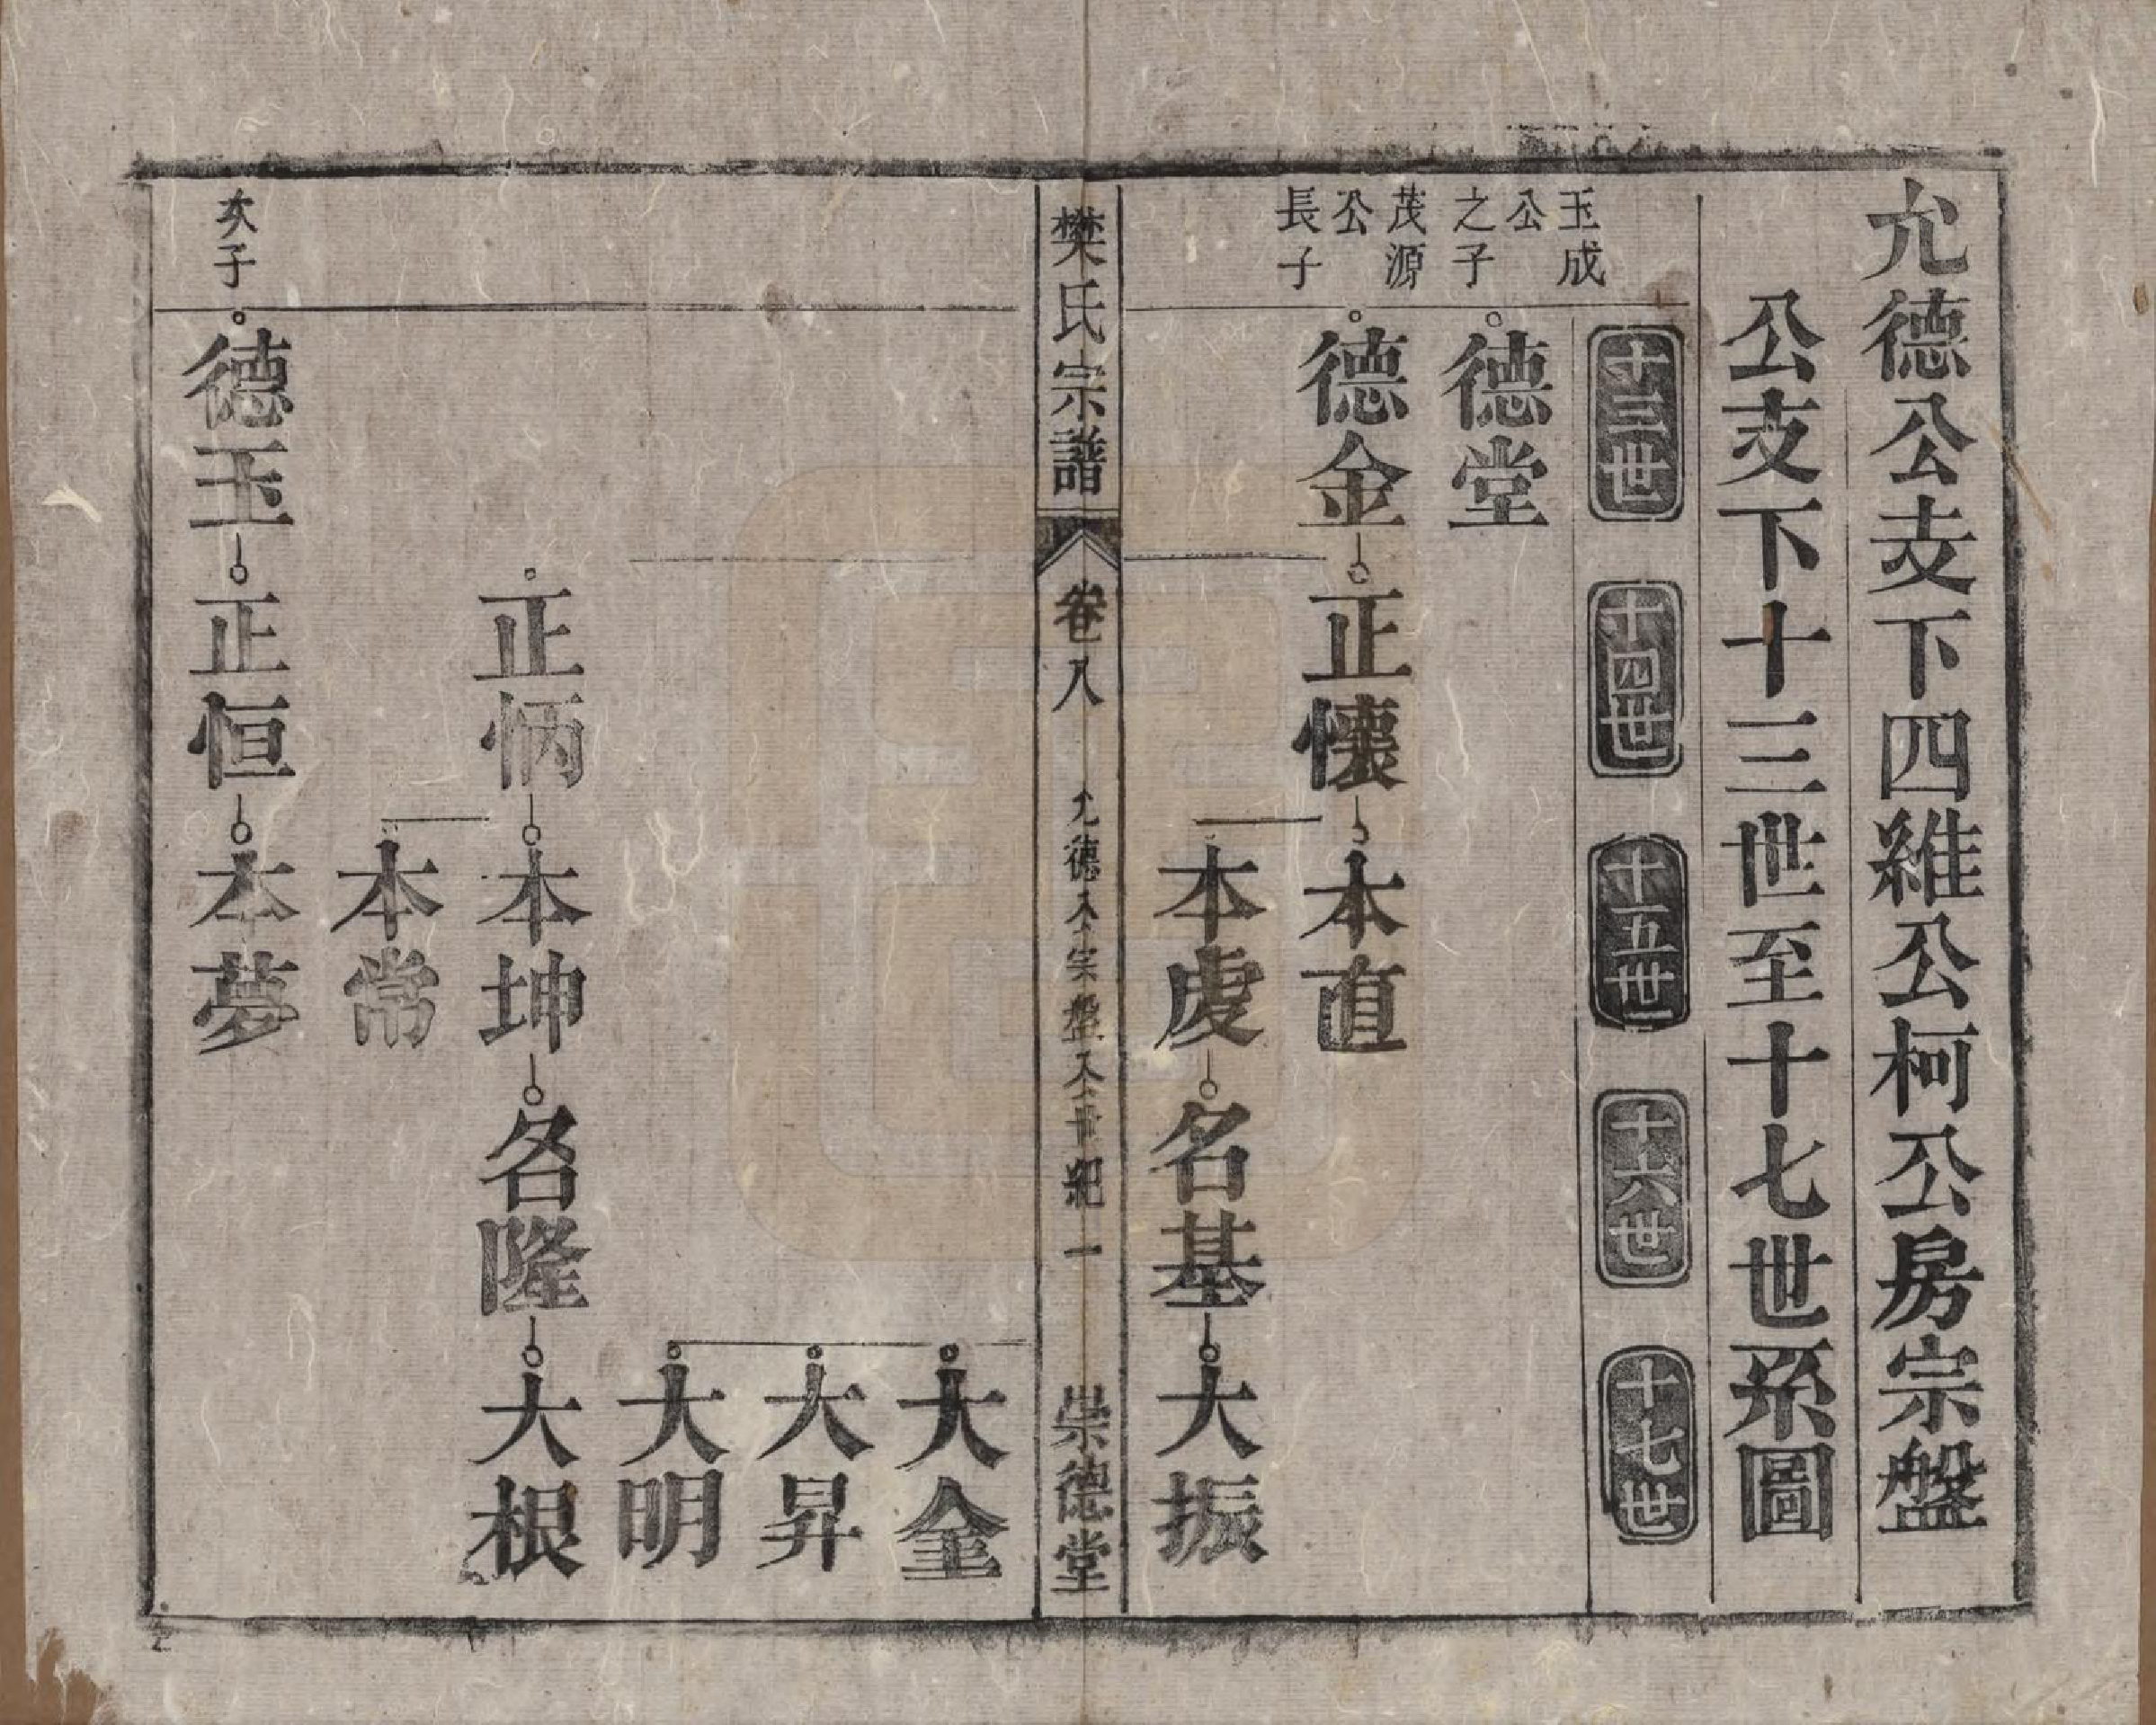 允德公支下四維公柯公房宗盤
公支下十三世至十七世系圖
十三世
十四世
十五世
十六世
十七世
玉成公之子
德堂
茂源公長子
德金
正懷
本直
本虔
名基
大振
樊氏宗譜
卷八
允德公宗盤公世紀
一
崇德堂
大金
大昇
大明
正怲
本坤
名隆
大根
本常
次子
德玉
正恒
本夢